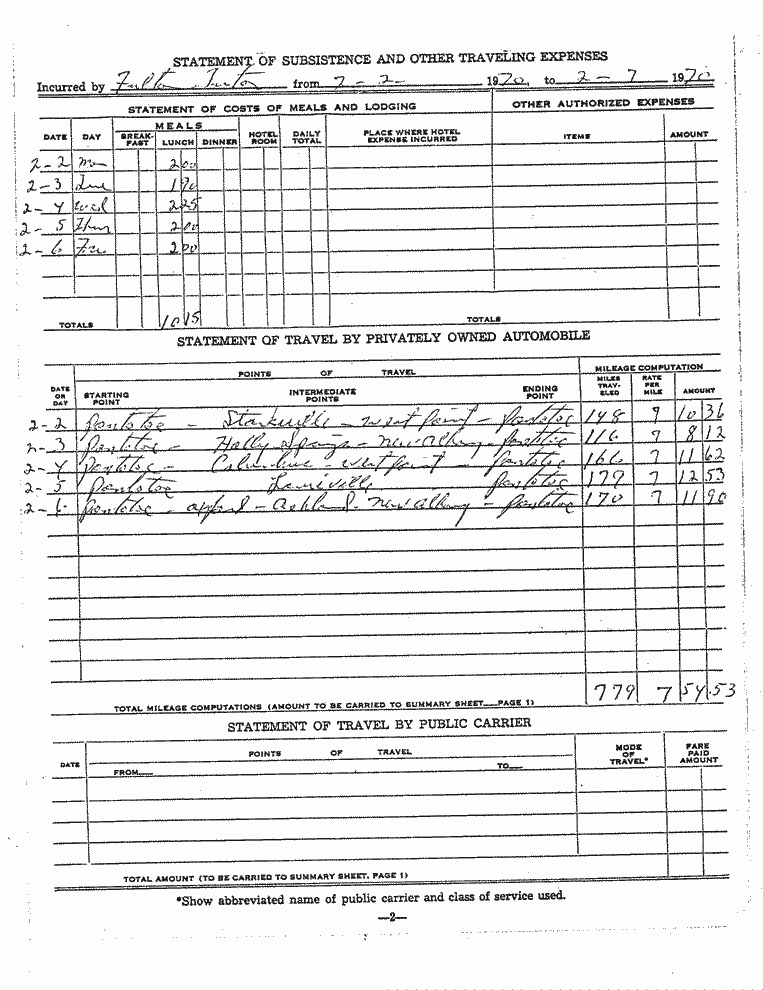 STATEMENT OF SUBSISTENCE AND OTHER TRAVELING EXPENSES
Incurred by Fulton Tutor from 2-2- 1970, to 2-7 1970
STATEMENT OF COSTS OF MEALS AND LODGING OTHER AUTHORIZED EXPENSES
DATE DAY MEALS BREAK-FAST LUNCH DINNER HOTEL ROOM DAILY TOTAL PLACE WHERE HOTEL EXPENSE INCURRED ITEMS AMOUNT
2-2 Mon 2 00
2-3 Tue 1 90
2-4 Wed 2 25
2-5 Thur 2 00
2-6 Fri 2 00
TOTALS 10 15 TOTALS
STATEMENT OF TRAVEL BY PRIVATELY OWNED AUTOMOBILE
POINTS OF TRAVEL MILEAGE COMPUTATION
DATE OR DAY STARTING POINT INTERMEDIATE POINTS ENDING POINT MILES TRAV-ELED RATE PER MILE AMOUNT
2-2 Pontotoc - Starkville - West Point - Pontotoc 148 7 10 36
2-3 Pontotoc - Holly Springs - New Albany - Pontotoc 116 7 8 12
2-4 Pontotoc - Columbus - West Point - Pontotoc 166 7 11 62
2-5 Pontotoc Louisville Pontotoc 179 7 12 53
2-6 Pontotoc - - Ashland - New Albany - Pontotoc 170 7 11 90
779 7 54.53
TOTAL MILEAGE COMPUTATIONS (AMOUNT TO BE CARRIED TO SUMMARY SHEET PAGE 1)
STATEMENT OF TRAVEL BY PUBLIC CARRIER
DATE POINTS OF TRAVEL MODE OF TRAVEL* FARE PAID AMOUNT
FROM TO
TOTAL AMOUNT (TO BE CARRIED TO SUMMARY SHEET, PAGE 1)
*Show abbreviated name of public carrier and class of service used.
—2—